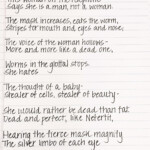 says she is a man, not a woman.
The mask increases, eats the worm,
Stripes for mouth and eyes and nose,
The voice of the woman hollows—
More and more like a dead one,
Worms in the glottal stops.
She hates
The thought of a baby—
Stealer of cells, stealer of beauty—
She would rather be dead than fat,
Dead and perfect, like Nefertit,
Hearing the fierce mask magnify
The silver limbo of each eye